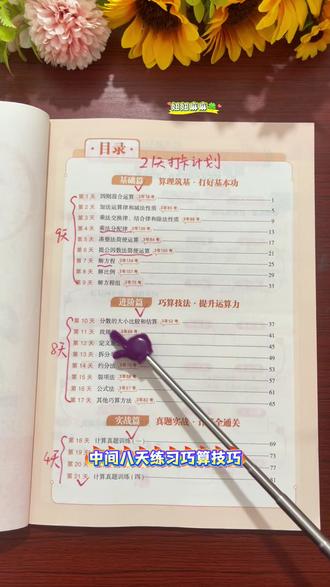 妞妞麻麻
目录
21天打卡计划
基础篇 算理筑基·打好基本功
第1天 四则混合运算 1
第2天 加法运算律和减法性质 5
第3天 乘法交换律、结合律和除法性质 9
第4天 乘法分配律 13
第5天 凑整法简便运算 17
第6天 提公因数法简便运算 21
第7天 解方程 25
第8天 解比例 29
第9天 解方程组 33
9天
进阶篇 巧算技法·提升运算力
第10天 分数的大小比较和估算 37
第11天 41
第12天 定义 45
第13天 拆分 49
第14天 约分法
第15天 裂项法 57
第16天 公式法 61
第17天 其他巧算方法 65
8天
实战篇 真题实战·计算全通关
第18天 计算真题训练(一) 69
第19天 73
第20天 77
第21天 计算真题训练(四) 81
4天
中间八天练习巧算技巧